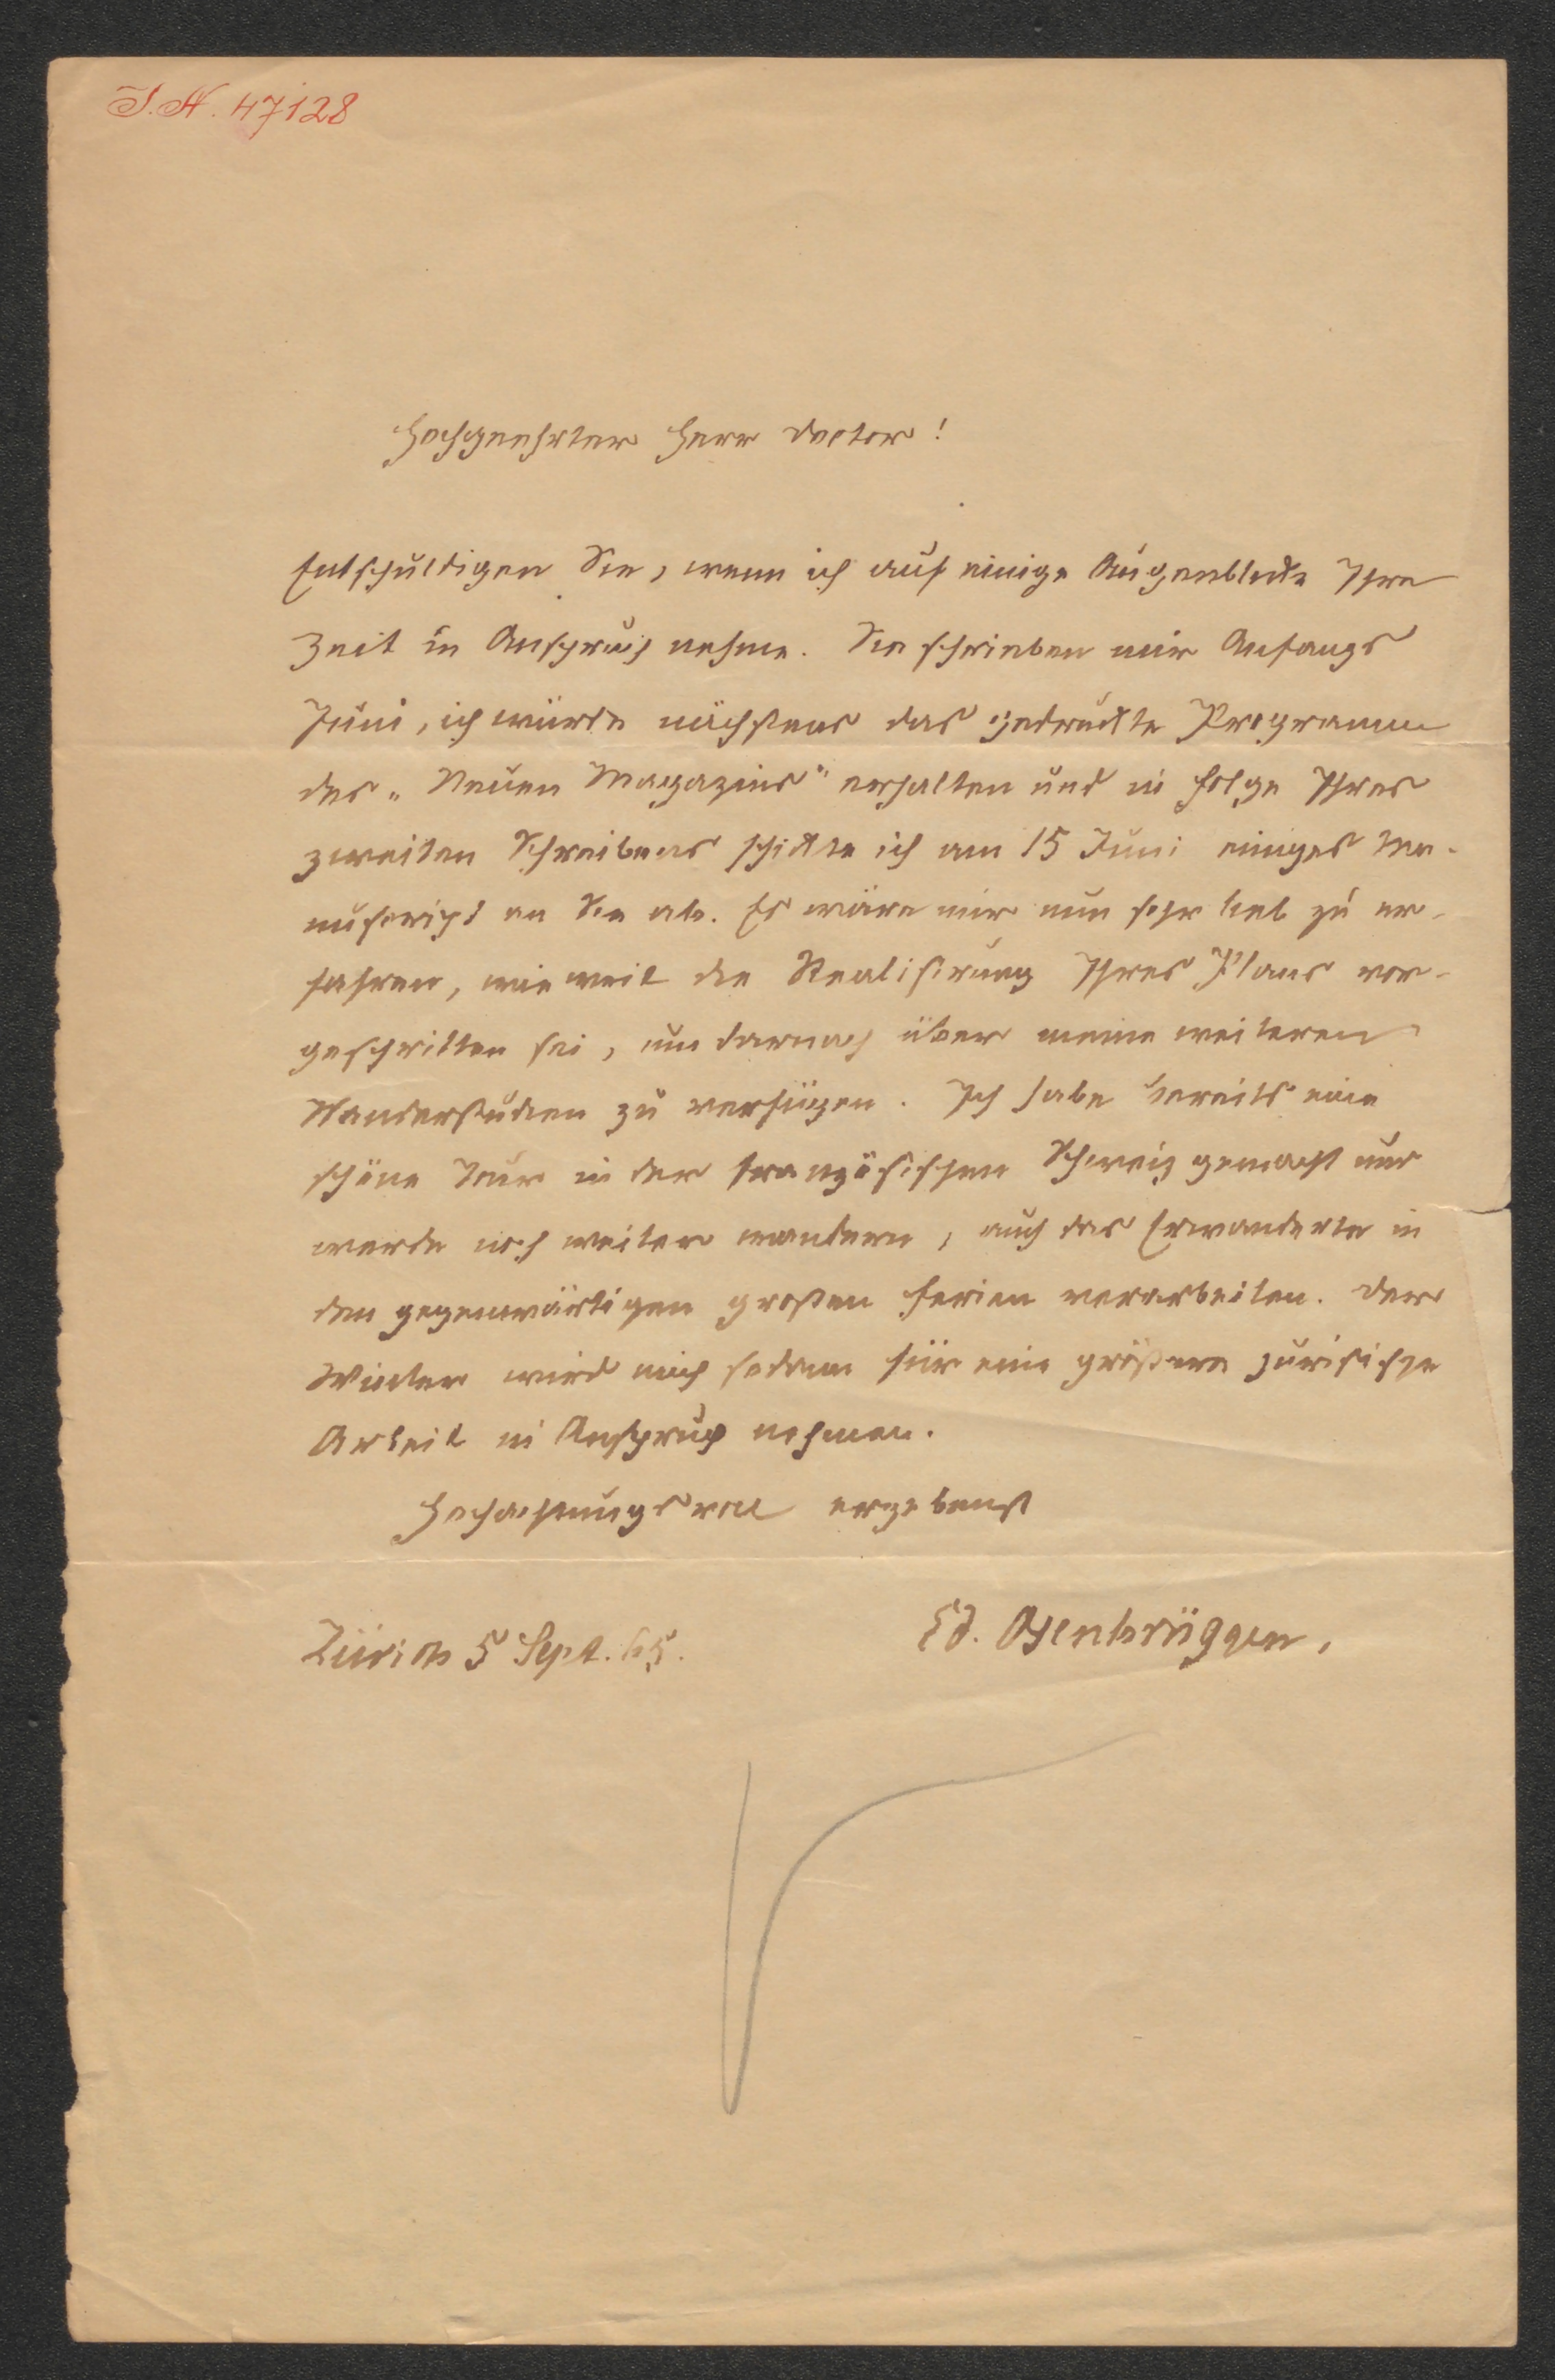 I.N. 47128
Hochgeehrter Herr Doctor!
Entschuldigen Sie, wenn ich auf einige Augenblicke Ihre
Zeit in Anspruch nehme. Sie schrieben mir Anfangs
Juni, ich würde nächstens das gedruckte Programm
des „Neuen Magazins" erhalten und in Folge Ihres
zweiten Schreibens schickte ich am 15 Juni einiges Ma-
nuscript an Sie ab. Es wäre mir nun sehr lieb zu er-
fahren, wie weit die Realisirung Ihres Plans vor-
geschritten sei, um darnach über meine weiteren
Wanderstudien zu verfügen. Ich habe bereits eine
schöne Tour in der französischen Schweiz gemacht und
werde noch weiter wandern, auch das Erwanderte in
den gegenwärtigen großen Ferien verarbeiten. Der
Winter wird mich sodann für eine größere juristische
Arbeit in Anspruch nehmen.
Hochachtungsvoll ergebenst
Ed. Osenbrüggen,
Zürich 5 Sept. 65.